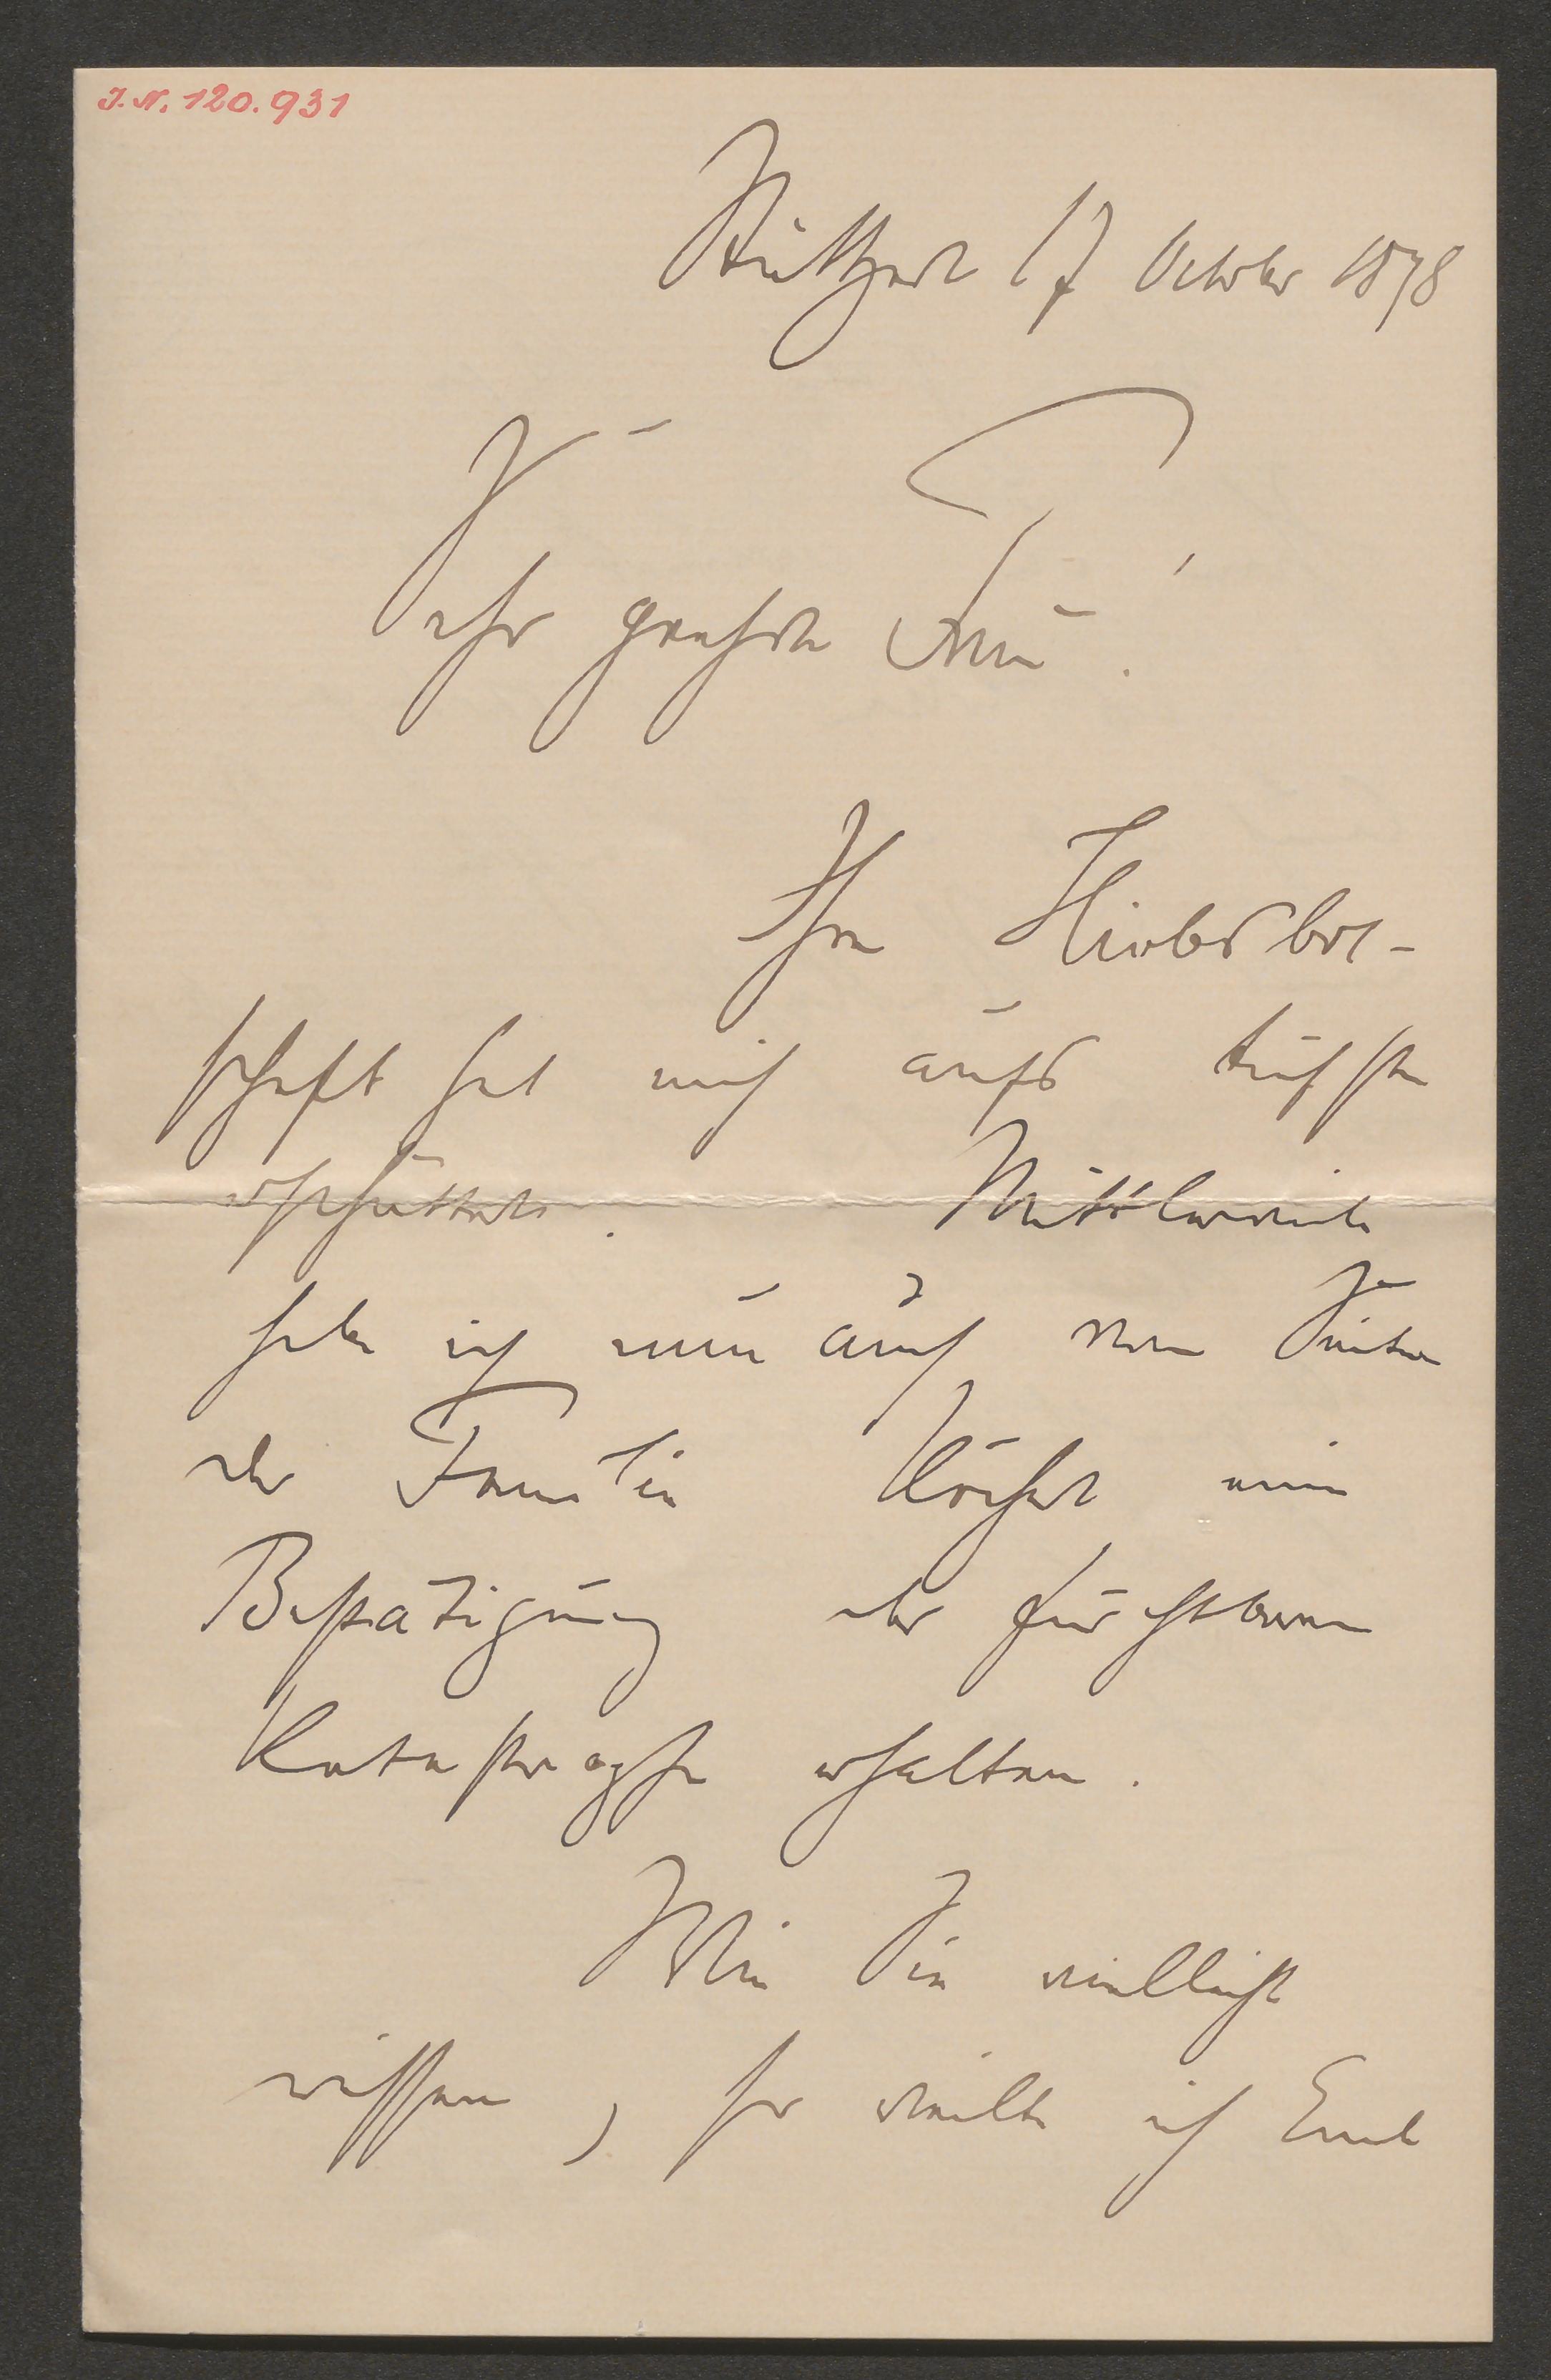 J. N. 120.931
Stuttgart 17 October 1898
Sehr geehrte Frau!
Ihre Hiobsbot-
schaft hat mich aufs tiefste
erschüttert. Mittlerweile
habe ich nun auch von Seiten
der Familie Köchert eine
Bestätigung der furchtbaren
Katastrophe erhalten.
Wie Sie vielleicht
wissen, so weilte ich Ende